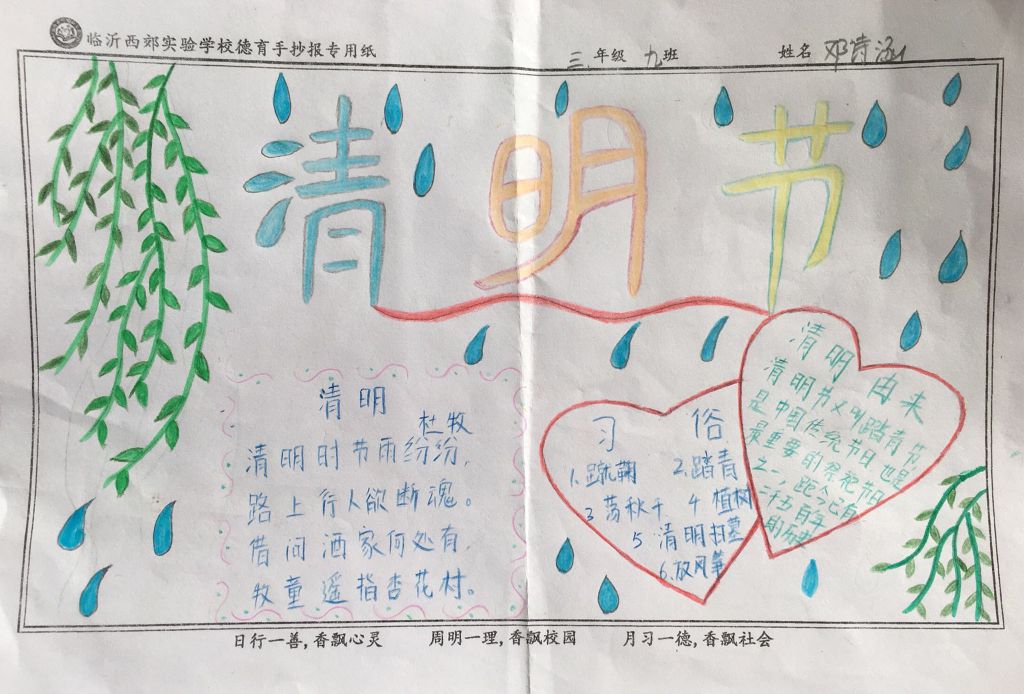 临沂西郊实验学校德育手抄报专用纸
三年级 九班
姓名 邓诗涵
清明节
清明
杜牧
清明时节雨纷纷,
路上行人欲断魂。
借问酒家何处有,
牧童遥指杏花村。
习俗
1.蹴鞠 2.踏青
3 荡秋千 4 植树
5 清明扫墓
6.放风筝
清明由来
清明节又叫踏青节,
是中国传统节日也是
最重要的祭祀节日
之一,距今已有
二千五百年
的历史
日行一善,香飘心灵 周明一理,香飘校园 月习一德,香飘社会